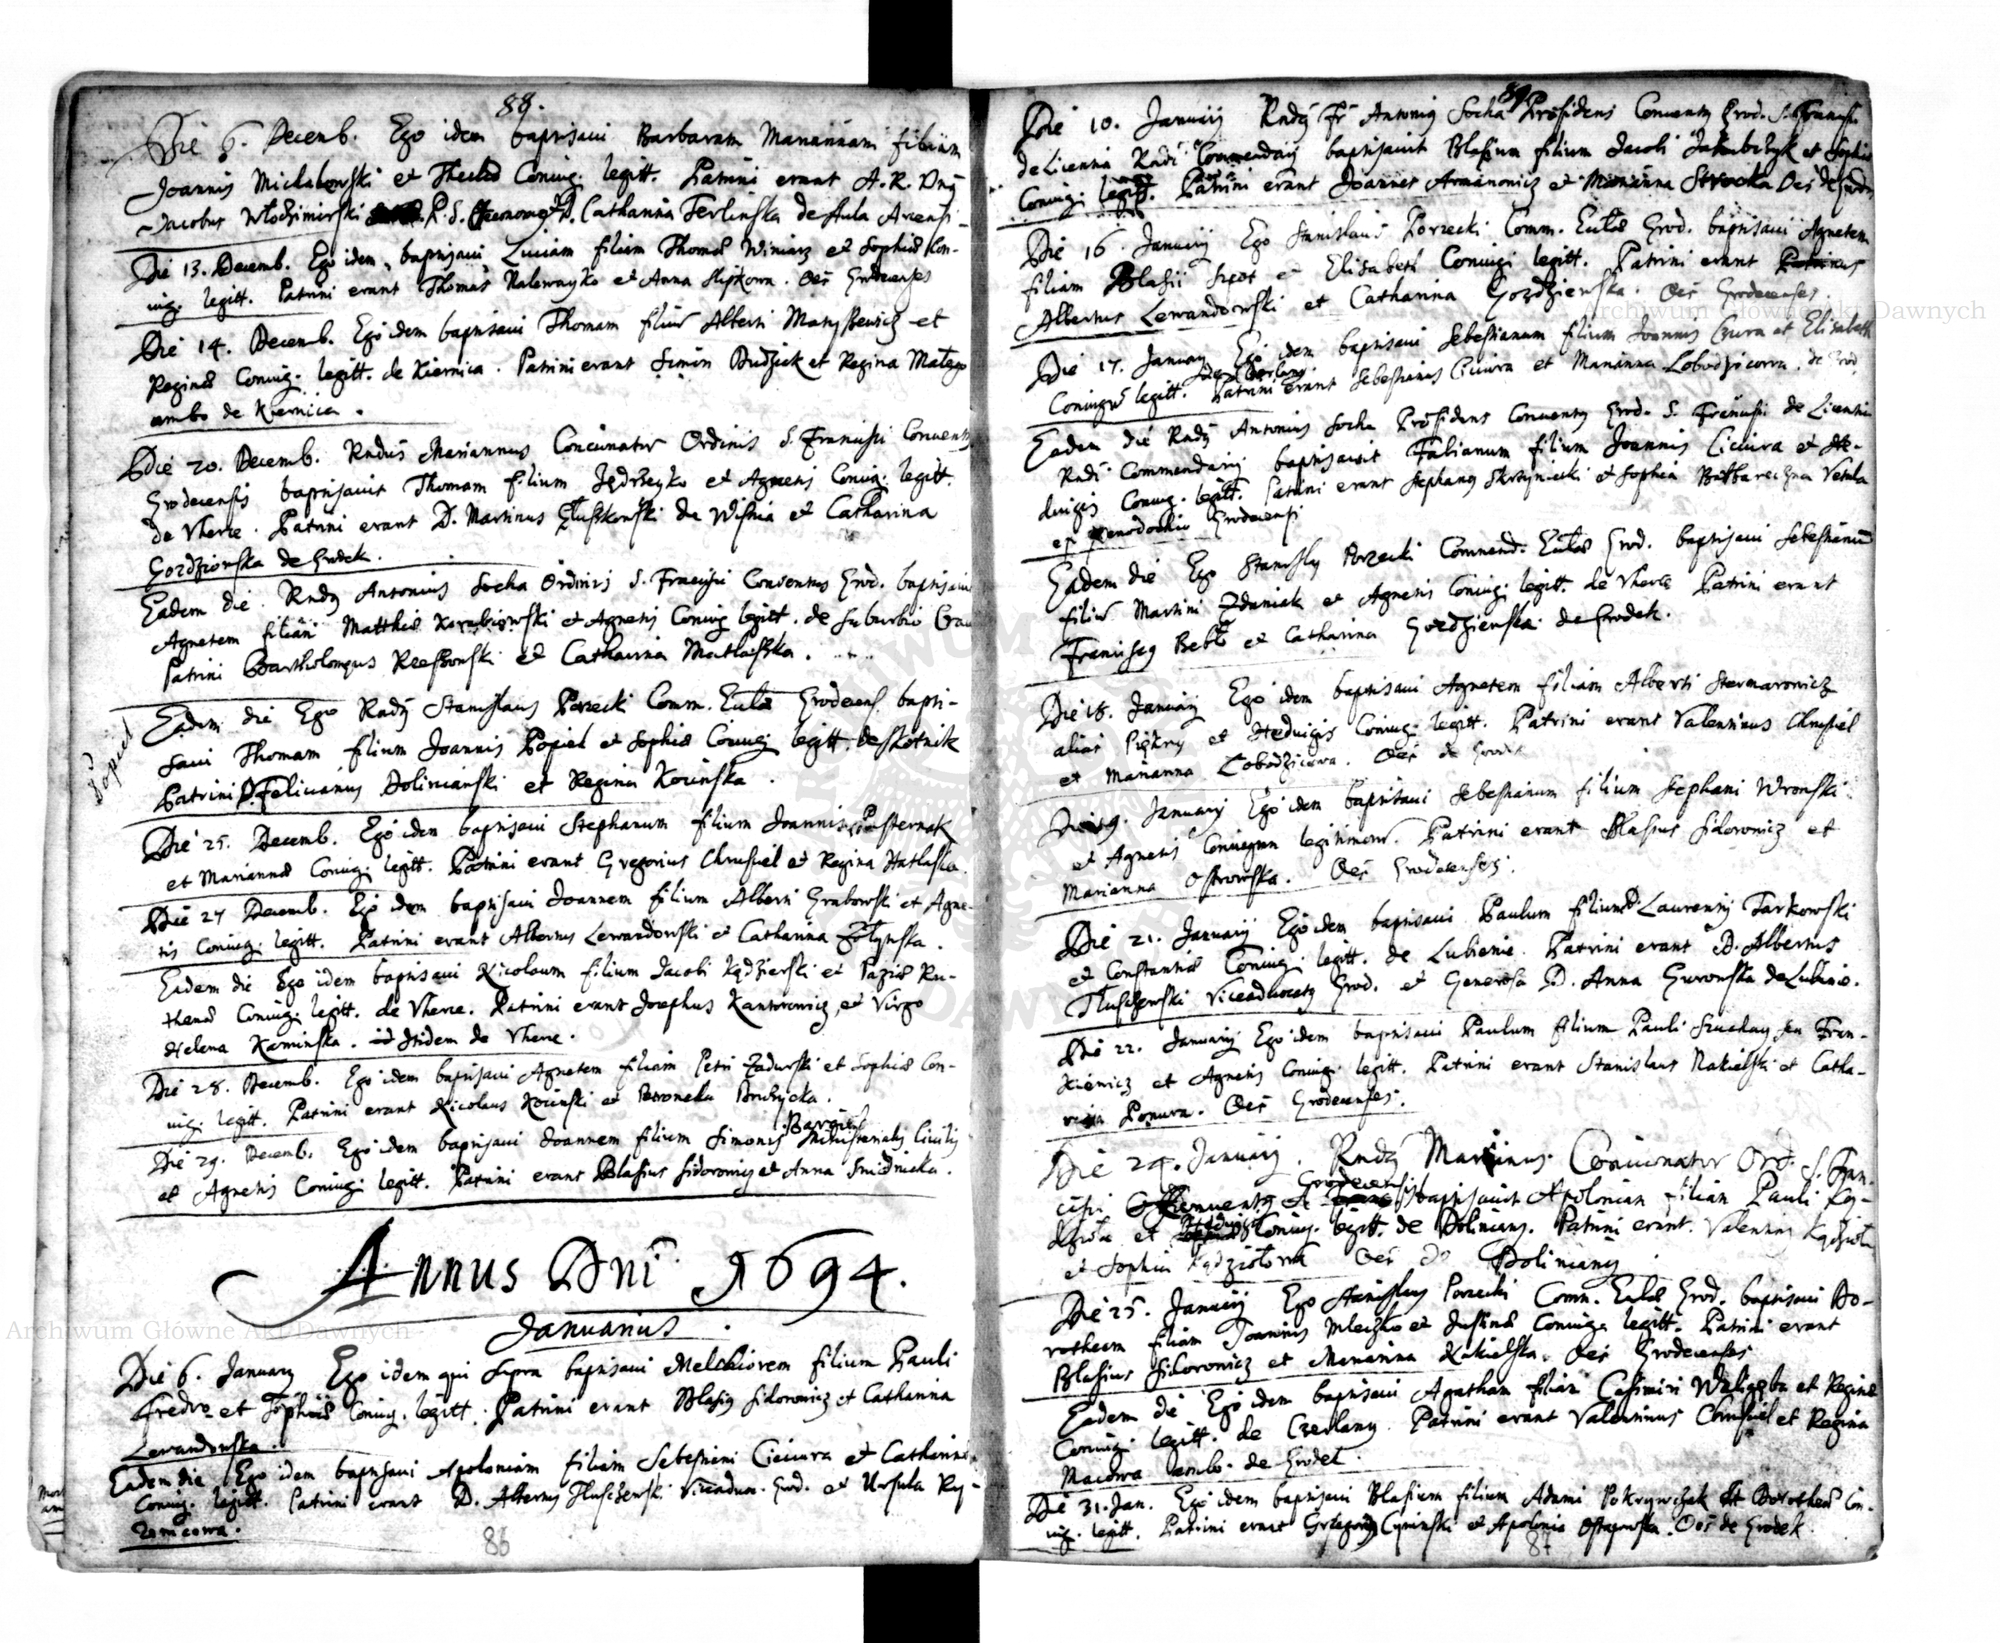 88.
Die 6. Decemb. Ego idem baptisavi Barbaram Mariannam filiam
Joannis Michalowski et Theclae Coniug. legitt. Patrini erant A. R. Dnus
Jacobus Włodzimirski R. S. Catharina Terlinska de Aula Arcensi
Die 13. Decemb. Ego idem baptisavi Luciam filiam Thomae Winiarz et Sophiae Con-
iug. legitt. Patrini erant Thomas Nalewayko et Anna Slipkowa. Oes Grodecenses
Die 14. Decemb. Ego idem baptisavi Thomam filiu Alberti Matyszewicz et
Reginae Coniug. legitt. de Kiernica. Patrini erant Simon Dudziek et Regina
ambo de Kiernica.
Die 20. Decemb. Rndus Mariannus Concionator Ordinis S. Francisci Conventus
Grodecensis baptisavit Thomam filium Jędrzeyko et Agnetis Coniug. legitt.
de Vherce. Patrini erant D. Martinus Głuszkowski de Wisnia et Catharina
Gozdzienska de Grodek.
Eadem die Rndus Antonius Socha Ordinis S. Francisci Conventus Grod. baptisavit
Agnetem filiam Matthiae et Agnetis Coniug legitt. de Suburbio
Patrini Bartholomaeus Rzeszowski et Catharina Matlaszka.
Popiel
Eadem die Ego Rndus Stanislaus Porzecki Comm. Eccl. Grodecens. bapti-
savi Thomam filium Joannis Popiel et Sophiae Coniug. legitt. de Rotnik
Patrini D. Felicianus Dolinianski et Regina Kocinska.
Die 25. Decemb. Ego idem baptisavi Stephanum filium Joannis Pasternak
et Mariannae Coniug. legitt. Patrini erant Gregorius Chrusciel et Regina Hatlaska.
Die 27 Decemb. Ego idem baptisavi Joannem filium Alberti Grabowski et Agne-
tis Coniug. legitt. Patrini erant Albertus Lewandowski et Catharina Zołynska.
Eadem die Ego idem baptisavi Nicolaum filium Jacobi Kędzierski et Paziae Ru-
thenae Coniug. legitt. de Vherce. Patrini erant Josephus Kantorowicz et Virgo
Helena Kaminska. itidem de Vherce.
Die 28. Decemb. Ego idem baptisavi Agnetem filiam Petri Zadurski et Sophiae Con-
iug. legitt. Patrini erant Nicolaus Kocinski et Petronela
Barycz
Die 29. Decemb. Ego idem baptisavi Joannem filium Simonis Ministerialis Civilis
et Agnetis Coniug. legitt. Patrini erant Blasius Sidorowicz et Anna Smidnicka.
Annus Dni 1694.
Januarius
Die 6. January Ego idem qui supra baptisavi Melchiorem filium Pauli
Fredro et Sophiae Coniug. legitt. Patrini erant Blasius Sidorowicz et Catharina
Lewandowska.
Eadem die Ego idem baptisavi Apoloniam filiam Sebestiani Cieciura et Catharinae
Coniug. legitt. Patrini erant D. Albertus Tluszczewski Viceadvoc. Grod. et Ursula
86
89
Die 10. January Rndus Fr Antonius Socha Praesidens Conventus Grod. S. Francisci
de Licentia Rndi Commendarii baptisavit Blasium filium Jacobi Jakubczyk et Sophiae
Coniug. legitt. Patrini erant Joannes Armanowicz et Marianna Oes de Grodek
Die 16. January Ego Stanislaus Porzecki Comm. Eccl. Grod. baptisavi Agnetem
filiam Blasii et Elisabeth Coniugi legitt. Patrini erant
Albertus Lewandowski et Catharina Gozdzienska. Oes Grodecenses.
Die 17. January Ego idem baptisavi Sebestianum filium Joannis Czura et Elisabeth
de Czerlany
Coniugu legitt. Patrini erant Sebestianus Cieciura et Marianna Lobodzicowa. de Grod.
Eadem die Rndus Antonius Socha Praesidens Conventus Grod. S. Francisci de Licentia
Rndi Commendarii baptisavit Fabianum filium Joannis Cieciura et He-
dvigis Coniug. legitt. Patrini erant Stephanus Skrzyniecki et Sophia Vetula
ex Xenodochio Grodecensi
Eadem die Ego Stanislaus Porzecki Commend. Eccl. Grod. baptisavi Sebestianum
filiu Martini Zdaniak et Agnetis Coniug. legitt. de Vherce Patrini erant
Franciscus et Catharina Gozdzienska de Grodek.
Die 18. January Ego idem baptisavi Agnetem filiam Alberti
alias et Hedvigis Coniug. legitt. Patrini erant Valentinus Chrusciel
et Marianna Lobodzicowa. Oes de Grodek
Die 19. January Ego idem baptisavi Sebestianum filium Stephani Wronski
et Agnetis Coniugum legitimoru. Patrini erant Blasius Sidorowicz et
Marianna Ostrowska. Oes Grodecenses.
Die 21. January Ego idem baptisavi Paulum filium D. Laurentii Tarkowski
et Constantiae Coniug. legitt. de Lubienie. Patrini erant D. Albertus
Tluszczewski Viceadvocatus Grod. et Generosa D. Anna Guronska de Lubinie.
Die 22. January Ego idem baptisavi Paulum filium Pauli seu Fran-
kiewicz et Agnetis Coniug. legitt. Patrini erant Stanislaus Nakielski et Catha-
rina Ponura. Oes Grodecenses.
Die 24. January. Rndus Martinus Concionator Ord. S. Fran-
Grodecensis
cisci Conventus baptisavit Apoloniam filiam Pauli Kę-
Hedvigis
dziola et Coniug. legitt. de Doliniany. Patrini erant. Valentinus Kędziola
et Sophia Kędziolowa Oes de Doliniany
Die 25. January Ego Stanislaus Porzecki Comm. Eccl. Grod. baptisavi Do-
rotheam filiam Joannis Mleczko et Justinae Coniug. legitt. Patrini erant
Blasius Sidorowicz et Marianna Nakielska. Oes Grodecenses
Eadem die Ego idem baptisavi Agatham filiam Casimiri et Reginae
Coniug. legitt. de Czerlany. Patrini erant Valentinus Chrusciel et Regina
Macowa ambo de Grodek.
Die 31. Jan. Ego idem baptisavi Blasium filium Adami Pokrywczak et Dorotheae Con-
iug. legitt. Patrini erant Grzegorz Cyrinski et Apolonia Oes de Grodek
87
Archiwum Główne Akt Dawnych
Archiwum Główne Akt Dawnych